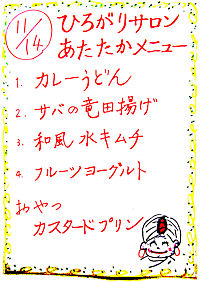 11/14
ひろがりサロン
あたたかメニュー
1. カレーうどん
2. サバの竜田揚げ
3. 和風 水キムチ
4. フルーツヨーグルト
おやつ
カスタードプリン